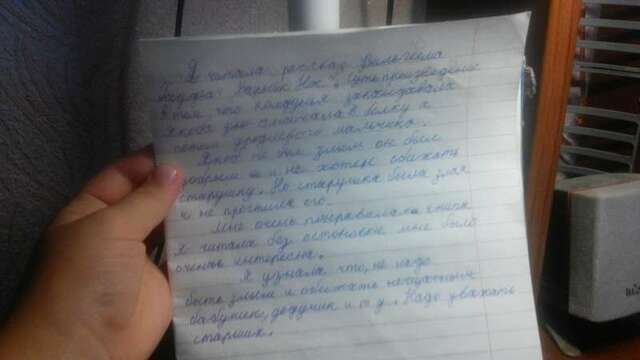 Я читала рассказ Вильгельма
Гауфа: Карлик Нос". Суть произведения
в том, что колдунья заколдовала
Якова сначала в белку а
потом уродливого мальчика.
Яков не был злым он был
добрым и не хотел обижать
старушку. Но старушка была злая
и не простила его.
Мне очень понравилась книга
Я читала без остановки мне было
очень интересна.
Я узнала что, не надо
быть злым и обижать
бабушек, дедушек и т у. Надо уважать
старших.